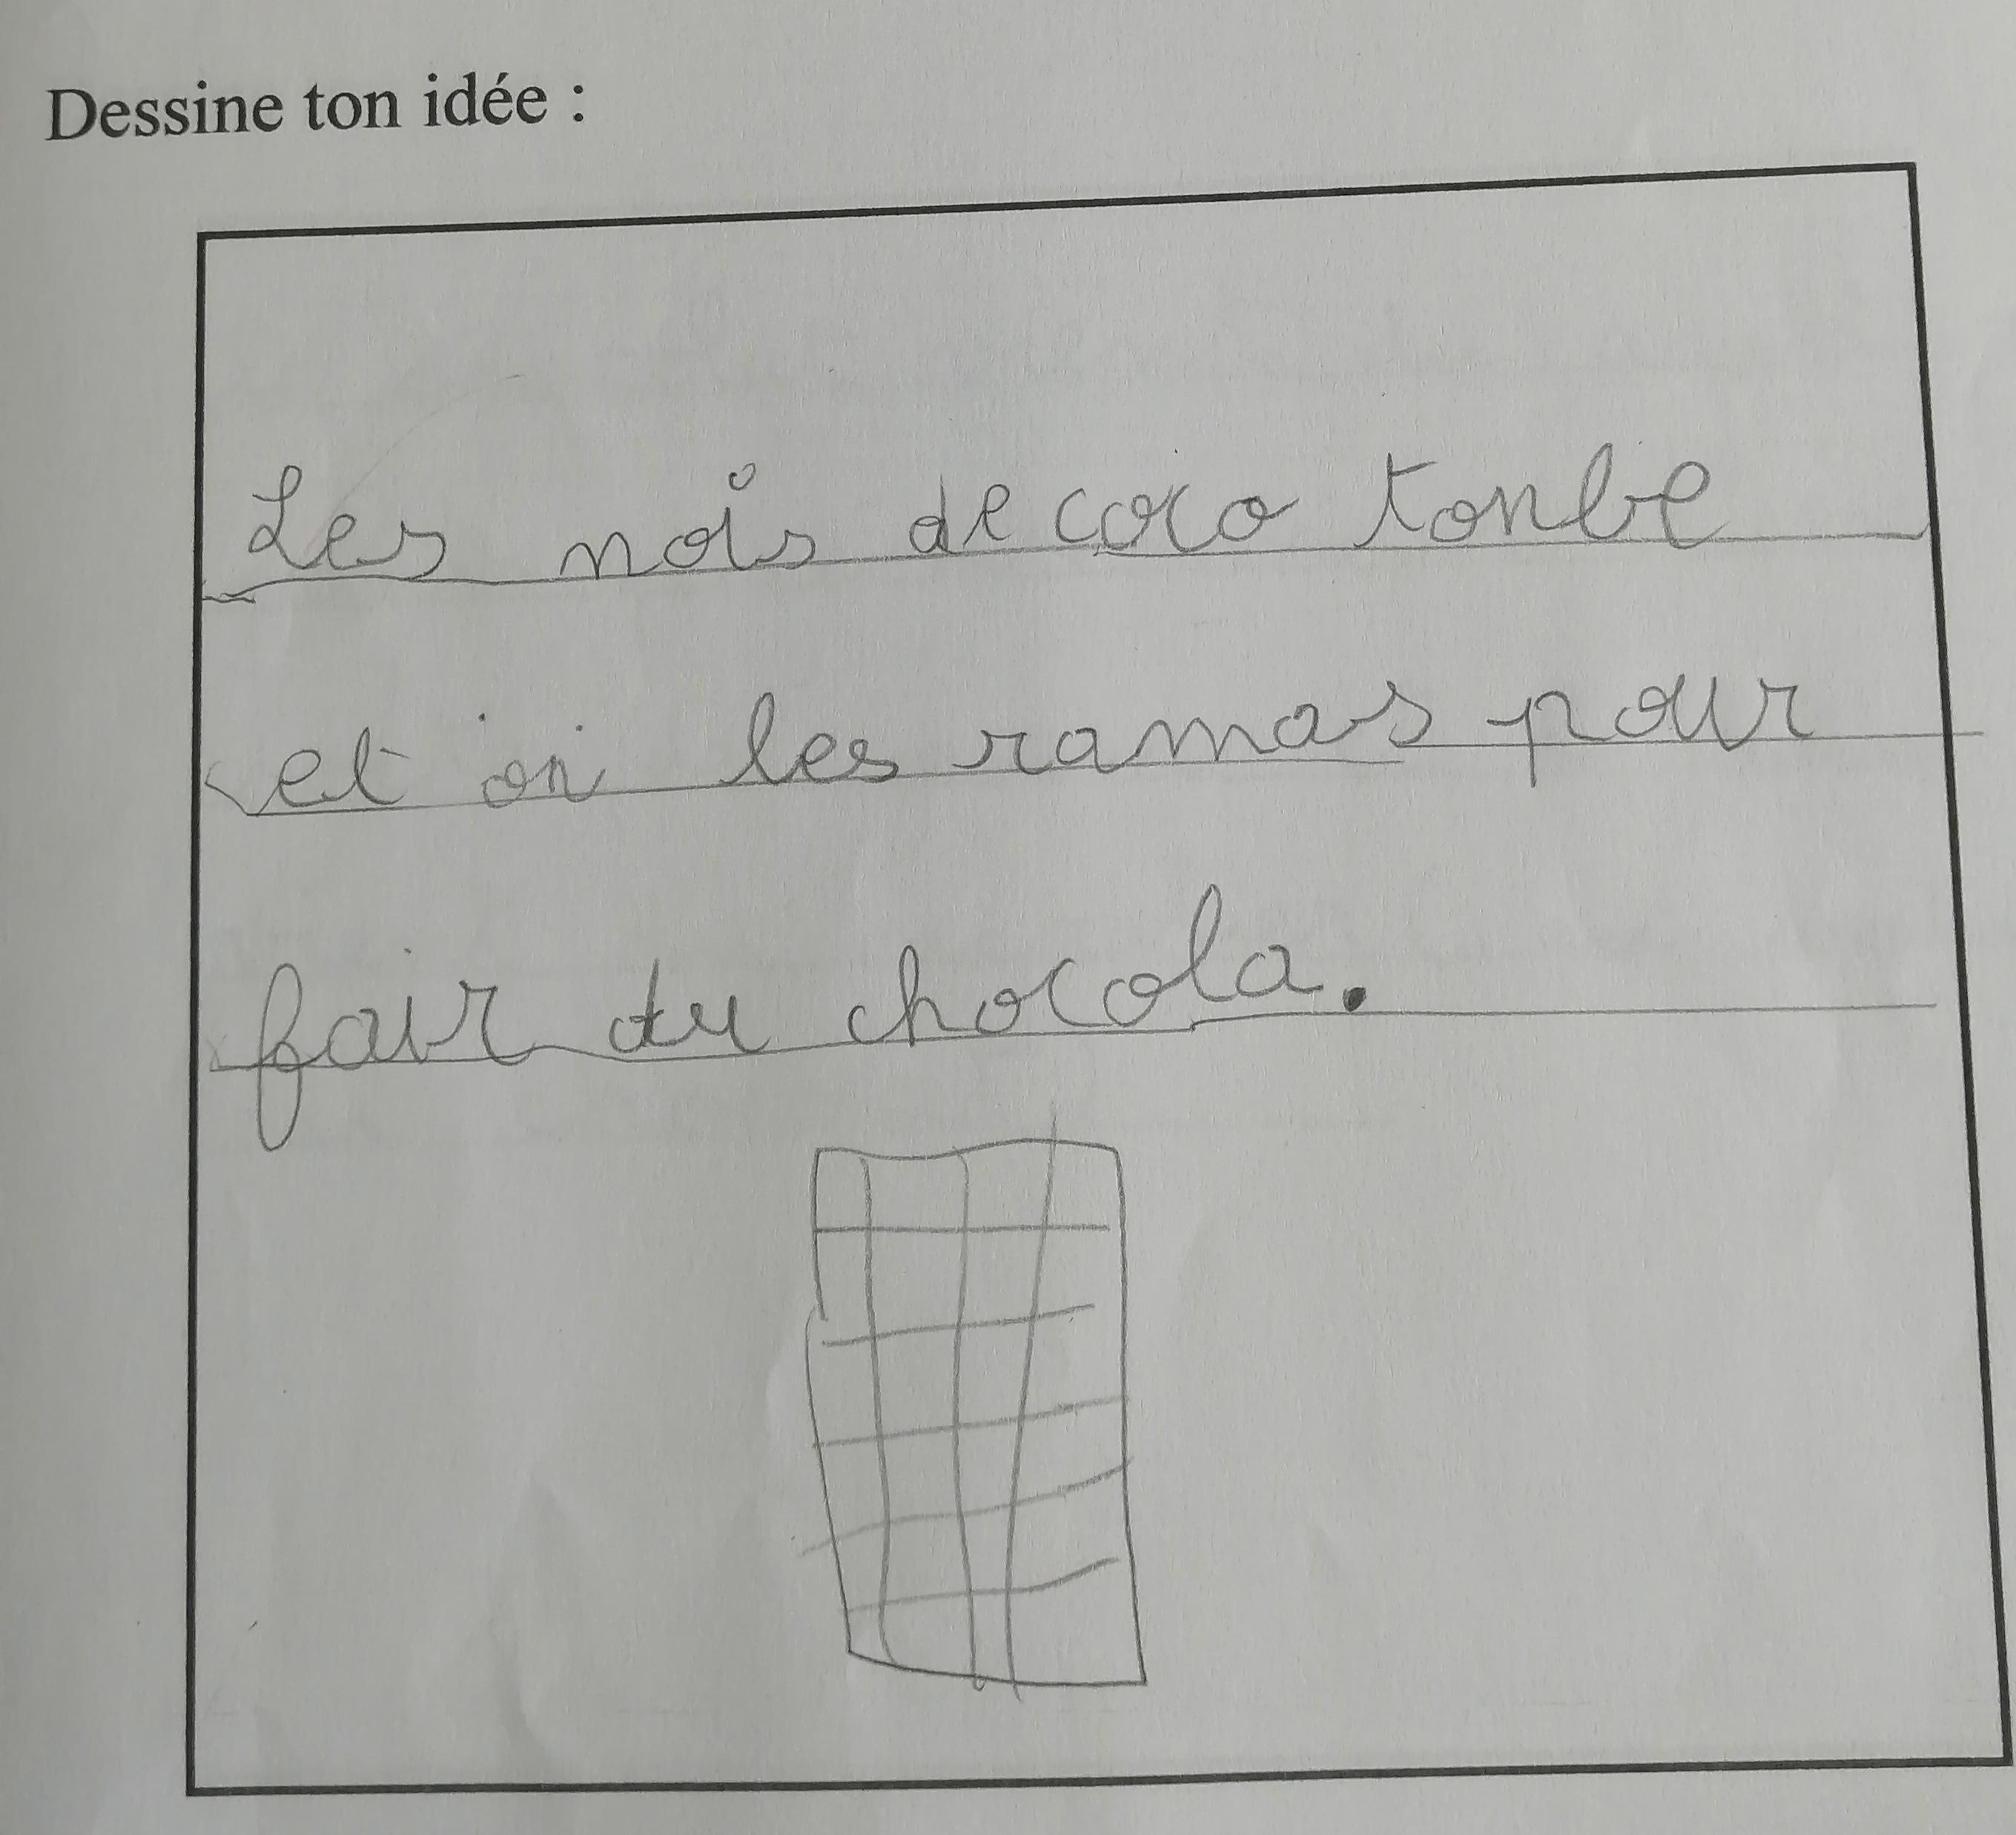 Dessine ton idée :
Les nois de coco tonbe
et on les ramas pour
fair du chocola.